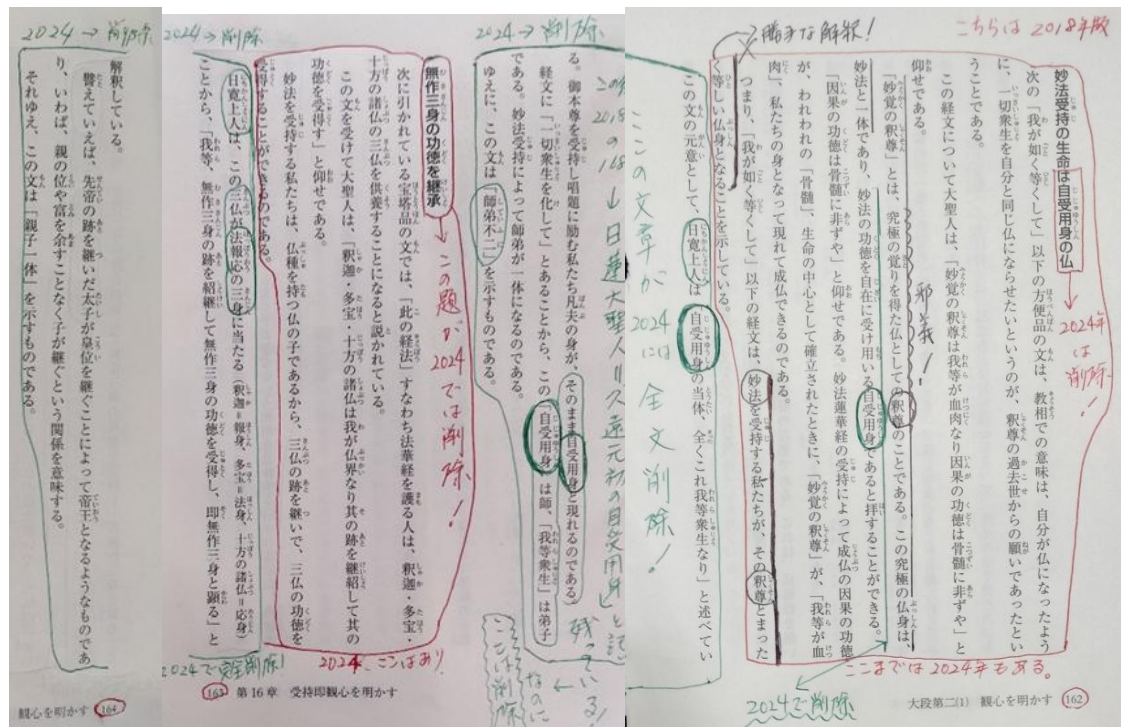 こちらは2018年版
妙法受持の生命は自受用身の仏
→2024年は削除!
次の「我が如く等くして」以下の方便品の文は、教相での意味は、自分が仏になったよう
に、一切衆生を自分と同じ仏にならせたいというのが、釈尊の過去世からの願いであったとい
うことである。
この経文について大聖人は、「妙覚の釈尊は我等が血肉なり因果の功徳は骨髄に非ずや」と
仰せである。
「妙覚の釈尊」とは、究極の覚りを得た仏としての釈尊のことである。この究極の仏身は、
邪義!
妙法と一体であり、妙法の功徳を自在に受け用いる自受用身であると拝することができる。
「因果の功徳は骨髄に非ずや」と仰せである。妙法蓮華経の受持によって成仏の因果の功徳
が、われわれの「骨髄」、生命の中心として確立されたときに、「妙覚の釈尊」が、「我等が血
肉」、私たちの身となって現れて成仏できるのである。
つまり、「我が如く等くして」以下の経文は、妙法を受持する私たちが、その釈尊とまった
く等しい仏身となることを示している。
勝手な解釈!
この文の元意として、日寛上人は「自受用身の当体、全くこれ我等衆生なり」と述べてい
ここの文章が2024には全文削除!
ここまでは2024年もある。
2024で削除
大段第二(1) 観心を明かす 162
2024→削除
2018の168→日蓮大聖人が久遠元初の自受用身と記
残っている!
なのに
ここは削除
る。御本尊を受持し唱題に励む私たち凡夫の身が、そのまま自受用身と現れるのである。
経文に「一切衆生を化して」とあることから、この「自受用身」は師、「我等衆生」は弟子
である。妙法受持によって師弟が一体になるのである。
ゆえに、この文は「師弟不二」を示すものである。
無作三身の功徳を継承
→この題が2024では削除!
次に引かれている宝塔品の文では、「此の経法」すなわち法華経を護る人は、釈迦・多宝・
十方の諸仏の三仏を供養することになると説かれている。
この文を受けて大聖人は、「釈迦・多宝・十方の諸仏は我が仏界なり其の跡を継紹して其の
功徳を受得す」と仰せである。
妙法を受持する私たちは、仏種を持つ仏の子であるから、三仏の跡を継いで、三仏の功徳を
受得することができるのである。
2024、ここはあり
2024→削除
日寛上人は、この三仏が法報応の三身に当たる(釈迦=報身、多宝=法身、十方の諸仏=応身)
ことから、「我等、無作三身の跡を紹継して無作三身の功徳を受得し、即無作三身と顕る」と
2024で完全削除!
163 第16章 受持即観心を明かす
2024→削除
解釈している。
譬えていえば、先帝の跡を継いだ太子が皇位を継ぐことによって帝王となるようなものであ
り、いわば、親の位や富を余すことなく子が継ぐという関係を意味する。
それゆえ、この文は「親子一体」を示すものである。
観心を明かす 164